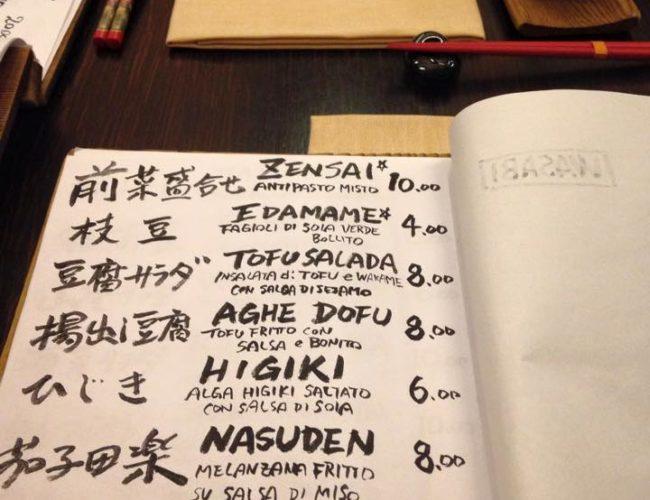 前菜盛合せ ZENSAI* 10.00
ANTIPASTO MISTO
枝豆 EDAMAME* 4.00
FAGIOLI DI SOIA VERDE
BOLLITO
豆腐サラダ TOFU SALADA 8.00
INSALATA di TOFU e WAKAME
CON SALSA DI SESAMO
揚出し豆腐 AGHE DOFU 8.00
TOFU FRITTO CON
SALSA e BONITO
ひじき HIGIKI 6.00
ALGA HIGIKI SALTATO
CON SALSA DI SOIA
茄子田楽 NASUDEN 8.00
MELANZANA FRITTO
SU SALSA DI MISO
WASABI